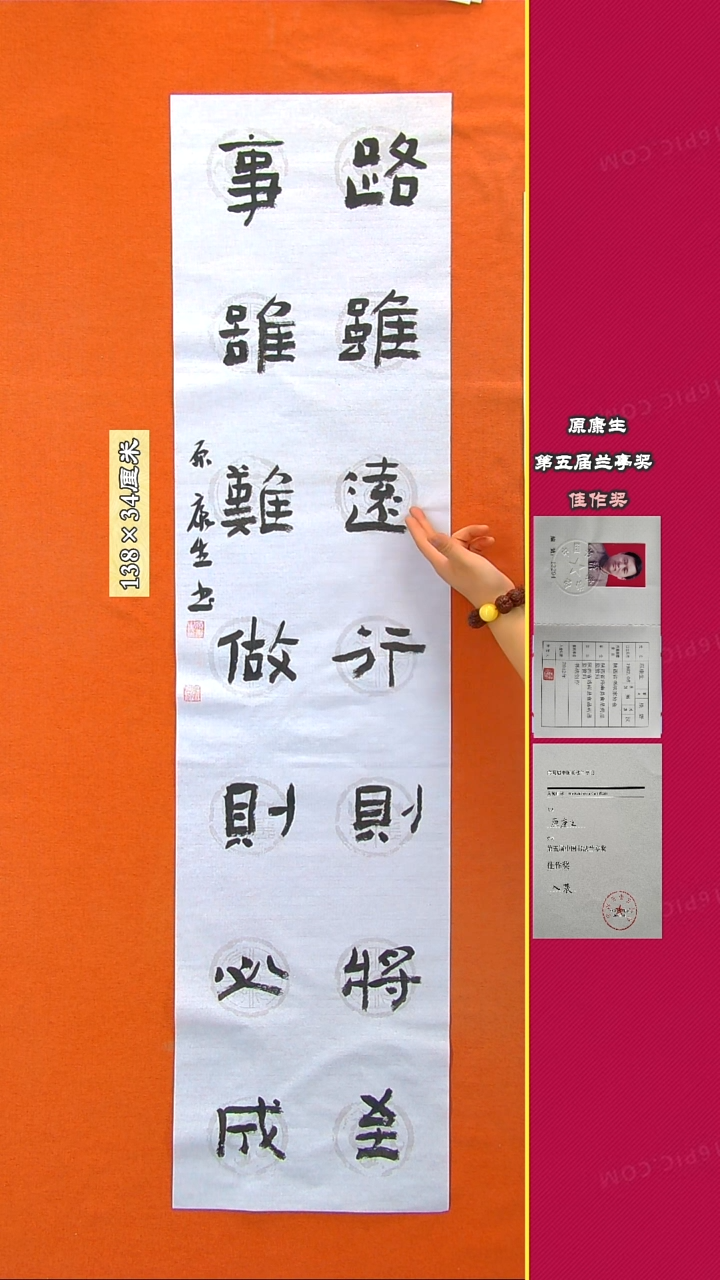 路雖遠行則將至
事雖難做則必成
原康生书
138×34厘米
原康生
第五届兰亭奖
佳作奖
第五届中国书法兰亭奖
佳作奖
入展
6PIC.COM